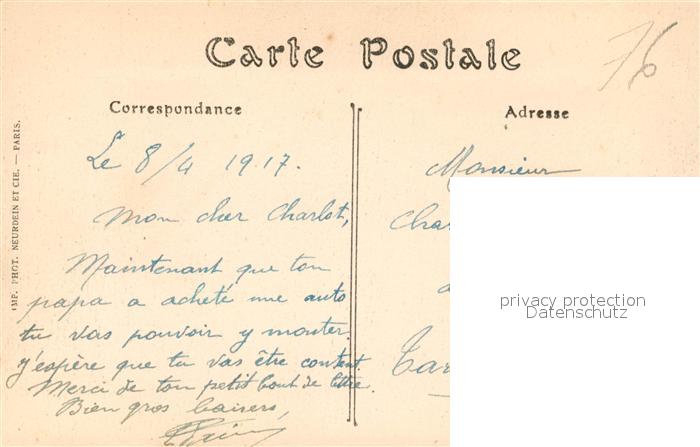 Carte Postale
76
Correspondance
Adresse
Le 8/4 1917.
Mon cher Charlot,
Maintenant que ton
papa a acheté une auto
tu vas pouvoir y monter.
J'espère que tu vas être content.
Merci de ton petit bout de lettre.
Bien gros baisers,
Monsieur
IMP. PHOT. NEURDEIN ET CIE. — PARIS.
privacy protection
Datenschutz